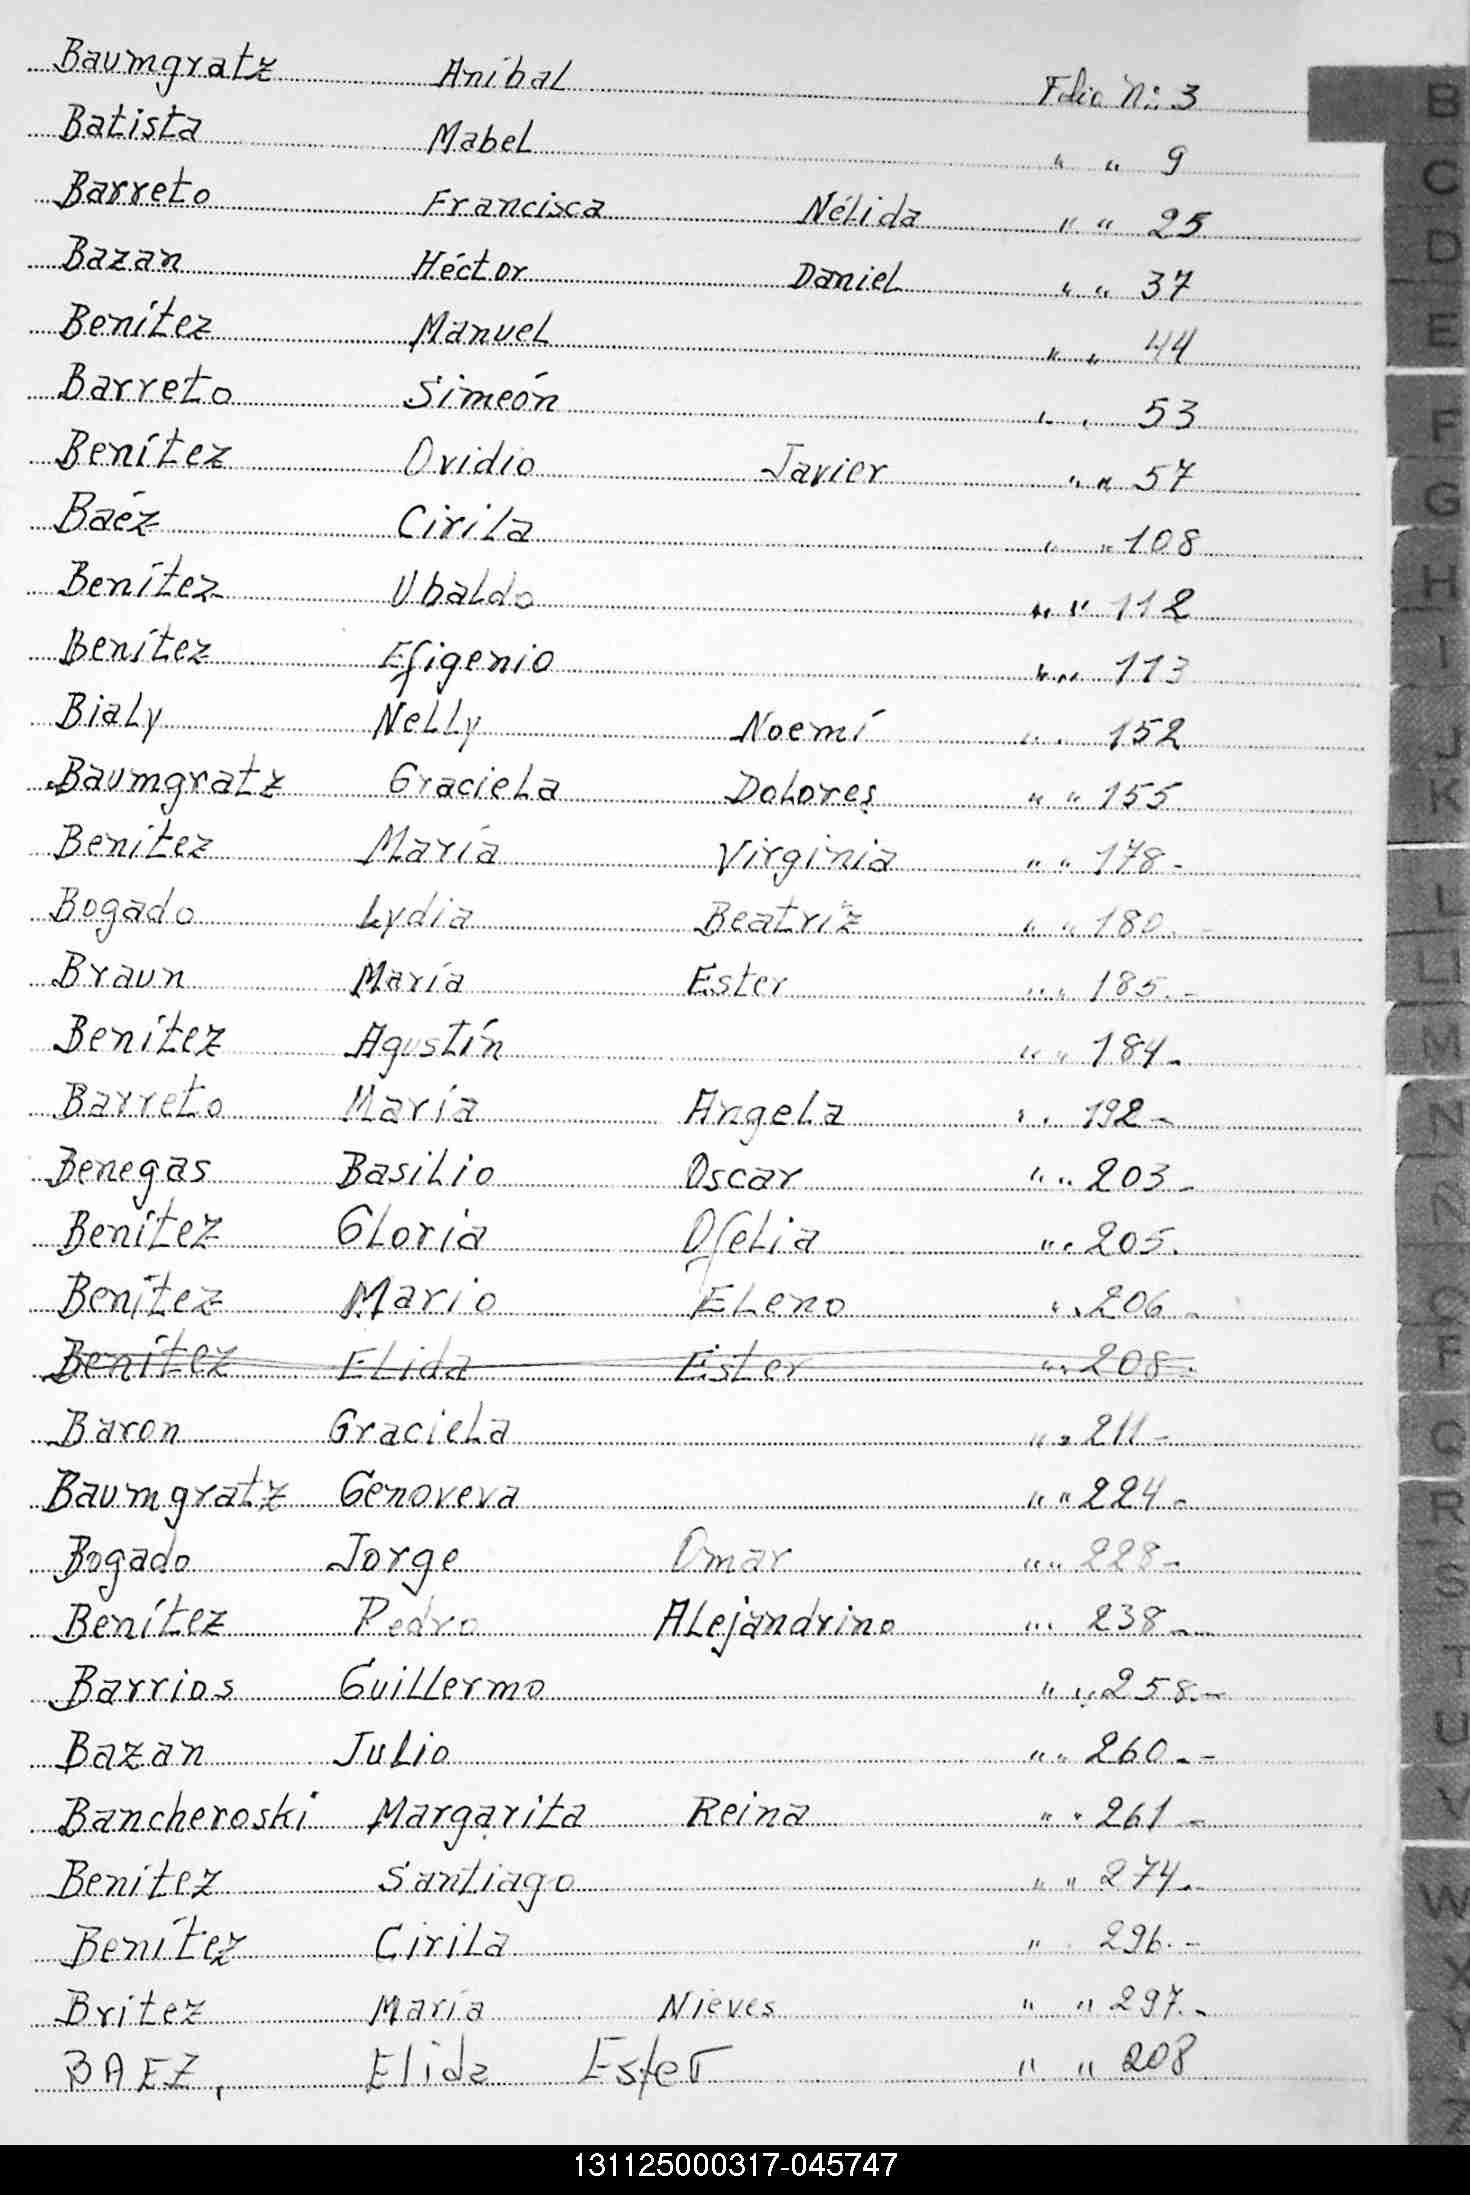 Baumgratz Aníbal Folio Nº: 3
Batista Mabel " " 9
Barreto Francisca Nélida " " 25
Bazan Héctor Daniel " " 37
Benítez Manuel " " 44
Barreto Simeón " " 53
Benítez Ovidio Javier " " 57
Baéz Cirila " " 108
Benítez Ubaldo " " 112
Benítez Efigenio " " 113
Bialy Nelly Noemí " " 152
Baumgratz Graciela Dolores " " 155
Benítez María Virginia " " 178-
Bogado Lydia Beatríz " " 180.-
Braun María Ester " " 185.-
Benítez Agustín " " 184-
Barreto María Angela " " 192-
Benegas Basilio Oscar " " 203-
Benítez Gloria Ofelia " " 205.
Benítez Mario Eleno " " 206-
Benítez Elida Ester " " 208-
Baron Graciela " " 211-
Baumgratz Genoveva " " 224-
Bogado Jorge Omar " " 228-
Benítez Pedro Alejandrino " " 238-
Barrios Guillermo " " 258.-
Bazan Julio " " 260.-
Bancheroski Margarita Reina " " 261-
Benitez Santiago " " 274-
Benítez Cirila " " 296.-
Britez María Nieves " " 297.-
BAEZ, Elida Ester " " 208
B
C
D
E
F
G
H
I
J
K
L
LL
M
N
Ñ
O
P
Q
R
S
T
U
V
W
X
Y
Z
131125000317-045747